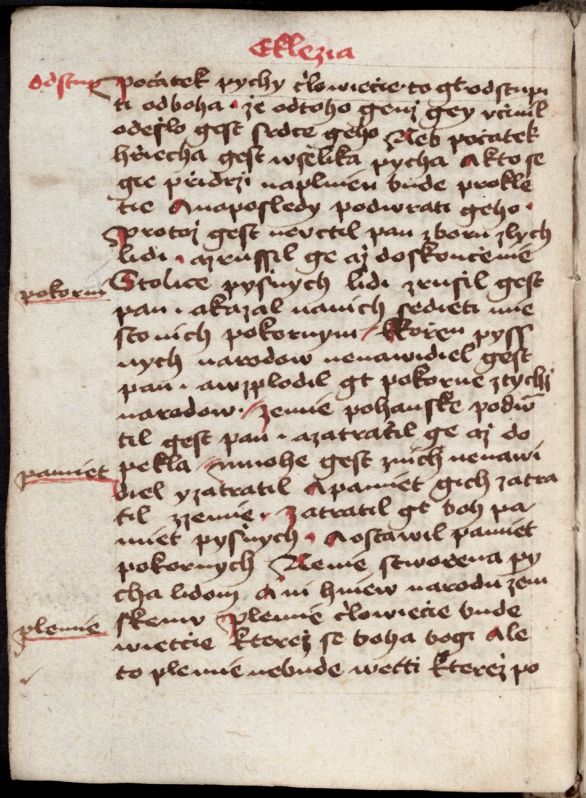 Eklezia
odstup
Počatek pychy člowiečie · to gt odstupi
ti odboha · že odtoho genž gey včinil
odešlo gest srdce geho Neb počatek
hřiecha gest wšelika pycha A kto se
gie přidrži naplnien bude prokle
tie A naposledy podwrati geho ·
Protož gest neuctil pan zboru zlych
lidi · azrussil ge až doskončenie
pokorni
Stolice pyšnych lidi zrušil gest
pan · akazal nanich sedieti mie
sto nich pokornym / Kořen pyss
nych narodow nenawidiel gest
pan · awzplodil gt pokorne ztychž
narodow · zemie pohanske podw
til gest pan · azatratil ge až do
pamiet
pekla mnohe gest znich nenawi
diel yzatratil A pamiet gich zatra
til zzemie · zatratil gt boh pa
miet pyšnych · A ostawil pamiet
pokornych Nenie stwořena py
cha lidom A ni hniew narodu žen
skemu Plemie člowiečie bude
plemie
wieččie kterež se boha bogi Ale
to plemie nebude wetti kterež po